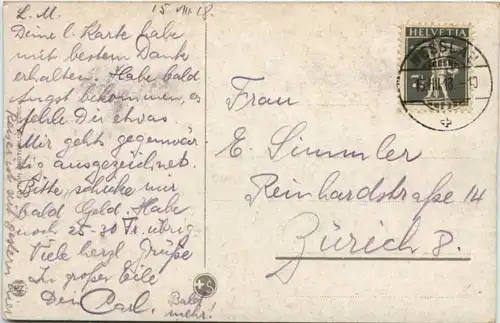 L. M.
15. VII. 18.
Deine l. Karte habe
mit bestem Dank
erhalten. Habe bald
Angst bekommen, es
fehle Dir etwas
Mir gehts gegenwär-
tig ausgezeichnet.
Bitte, schicke mir
bald Geld. Habe
noch 25-30 Fr. übrig.
Viele herzl. Grüße
In großer Eile
Dein Carl.
Bald
mehr!
HELVETIA
7½
Frau
E. Simmler
Reinhardstraße 14
Zürich 8.